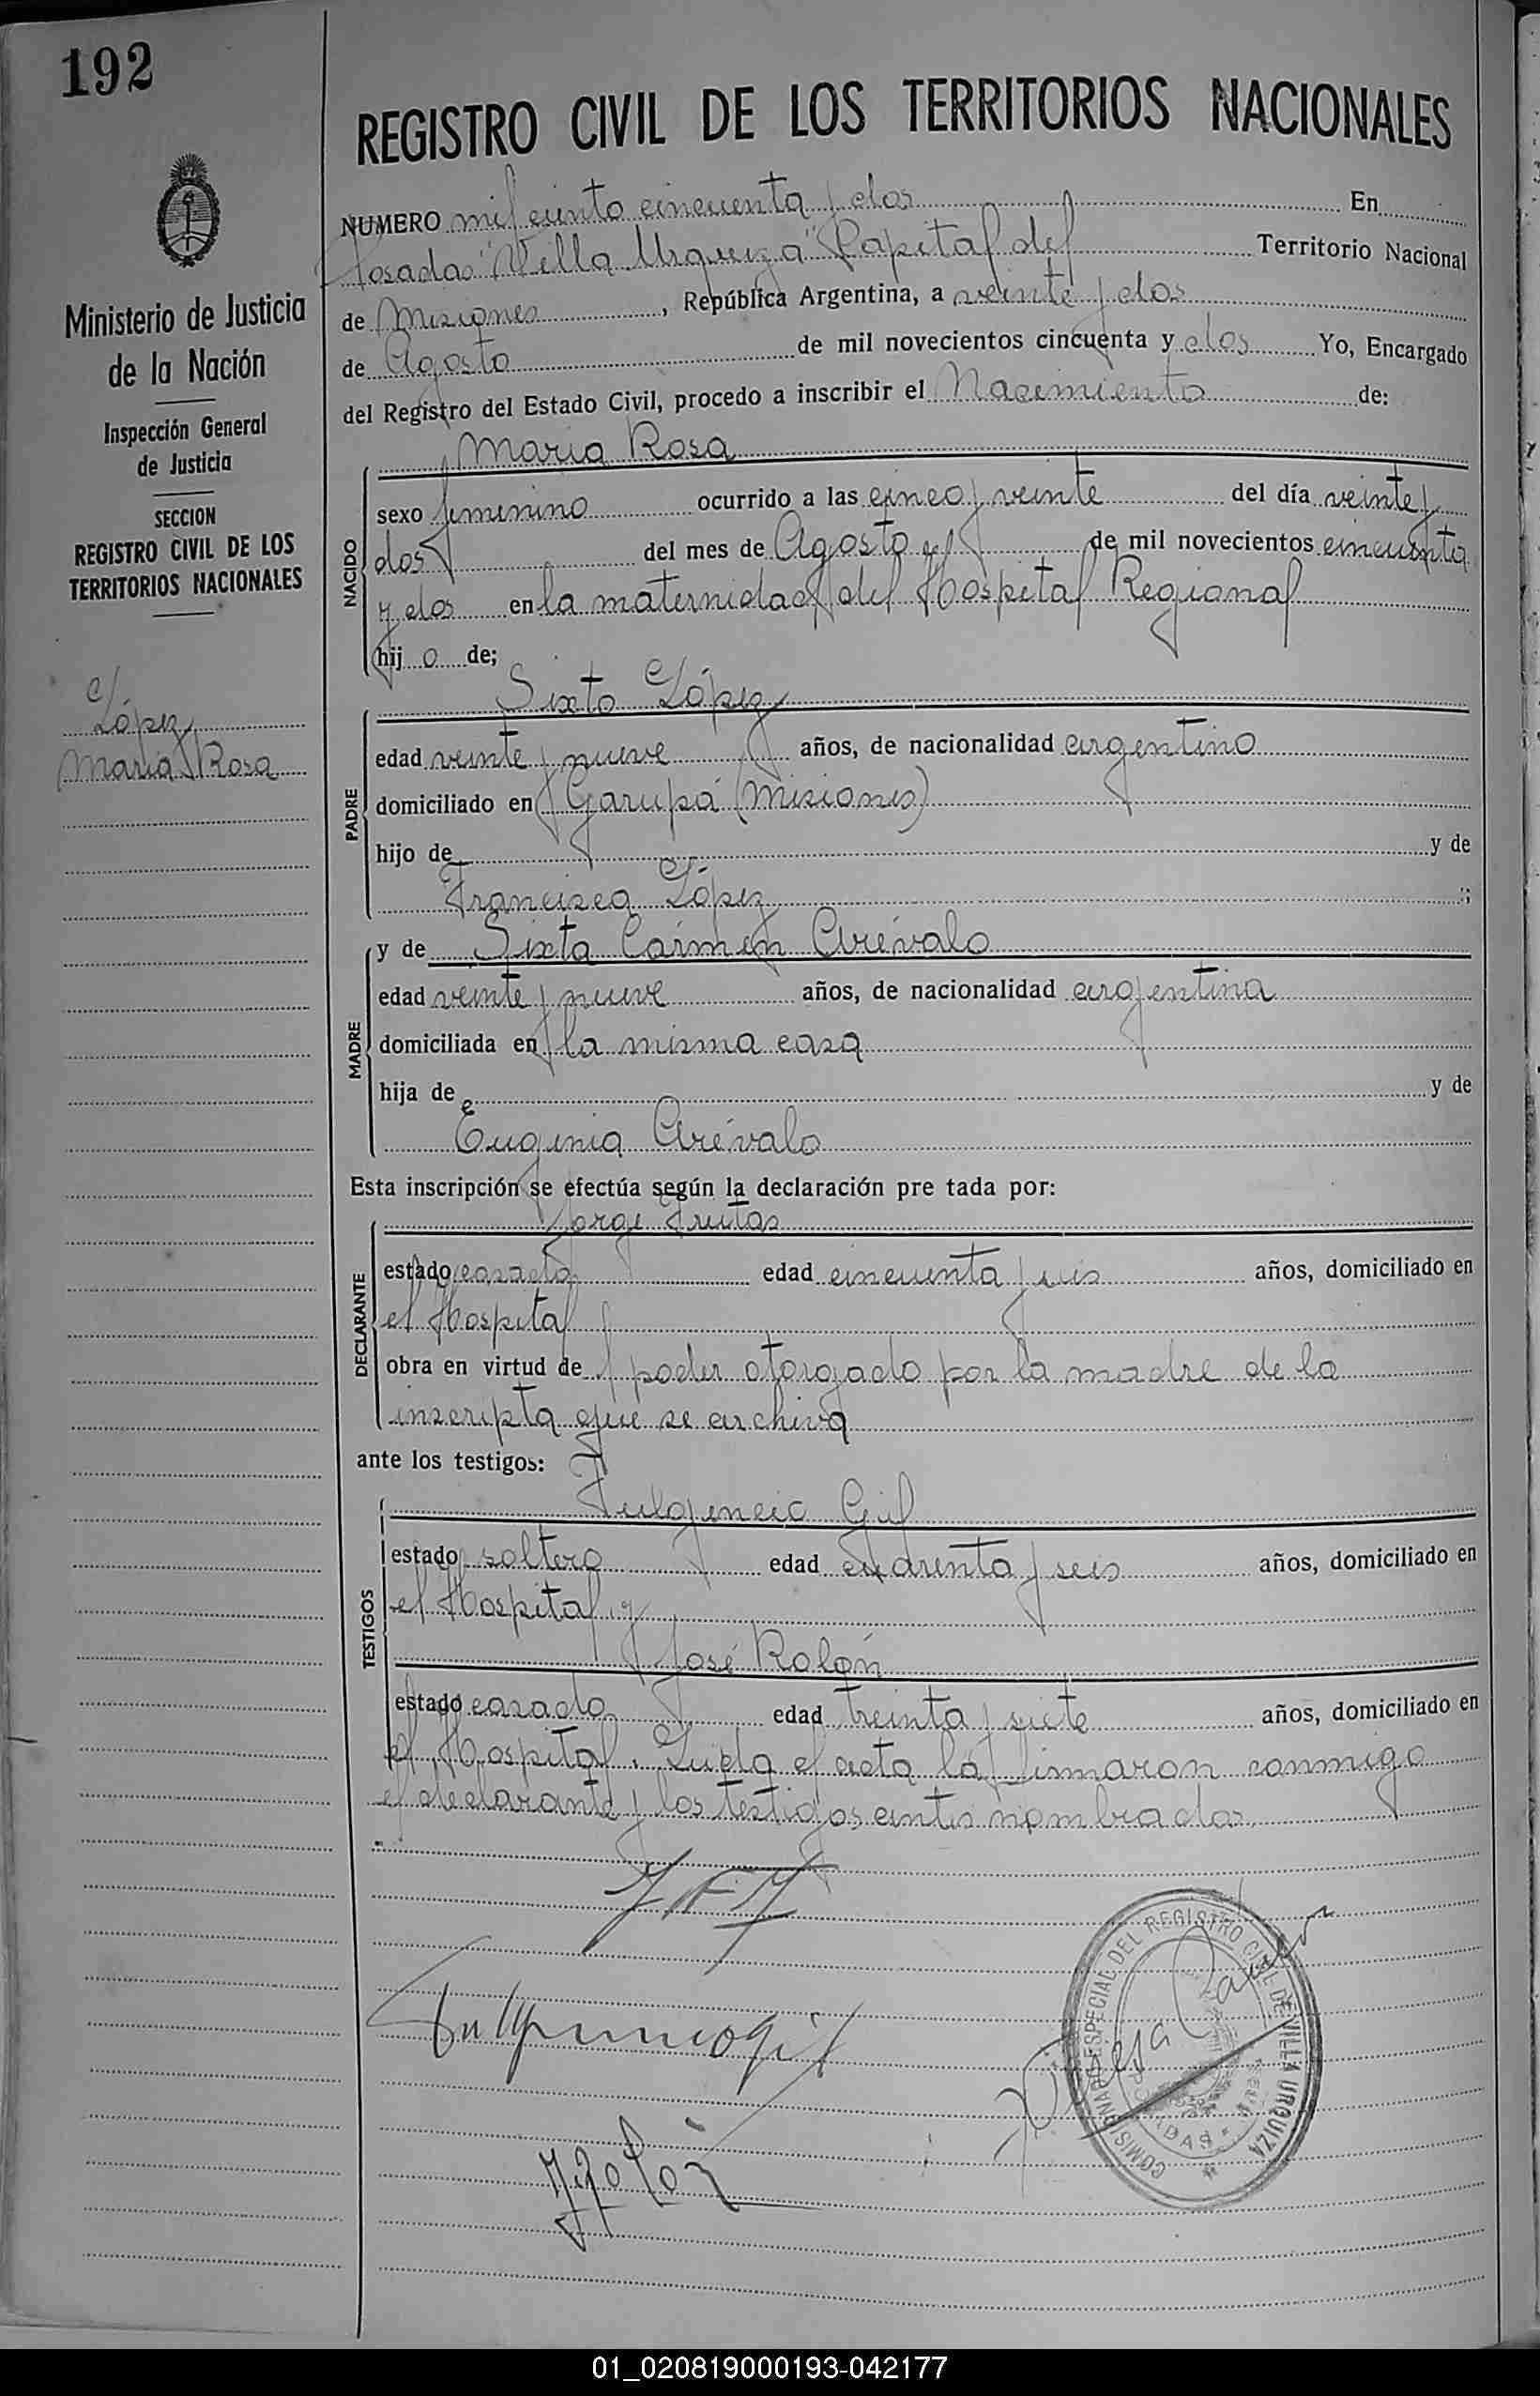 192
REGISTRO CIVIL DE LOS TERRITORIOS NACIONALES
Ministerio de Justicia
de la Nación
Inspección General
de Justicia
SECCION
REGISTRO CIVIL DE LOS
TERRITORIOS NACIONALES
López
María Rosa
NUMERO mil ciento cincuenta y dos En
Posadas "Villa Urquiza" Capital del Territorio Nacional
de Misiones, República Argentina, a veinte y dos
de Agosto de mil novecientos cincuenta y dos Yo, Encargado
del Registro del Estado Civil, procedo a inscribir el Nacimiento de:
María Rosa
NACIDO
sexo femenino ocurrido a las cinco y veinte del día veinte y
dos del mes de Agosto del de mil novecientos cincuenta
y dos en la maternidad del Hospital Regional
hij o de;
Sixto López
PADRE
edad veinte y nueve años, de nacionalidad argentino
domiciliado en Garupá (Misiones)
hijo de y de
Francisca López ;
MADRE
y de Sixta Carmen Arévalo
edad veinte y nueve años, de nacionalidad argentina
domiciliada en la misma casa
hija de y de
Eugenia Arévalo
Esta inscripción se efectúa según la declaración pre tada por:
Jorge Fruitas
DECLARANTE
estado casado edad cincuenta y seis años, domiciliado en
el Hospital
obra en virtud de poder otorgado por la madre de la
inscripta que se archiva
ante los testigos:
Fulgencio Gil
TESTIGOS
estado soltero edad cuarenta y seis años, domiciliado en
el Hospital y
José Rolón
estado casado edad treinta y siete años, domiciliado en
el Hospital. Leida el acta la firmaron conmigo
el declarante y los testigos antes nombrados.
Fulgencio Gil
COMISIONADO ESPECIAL DEL REGISTRO CIVIL DE VILLA URQUIZA
01_020819000193-042177